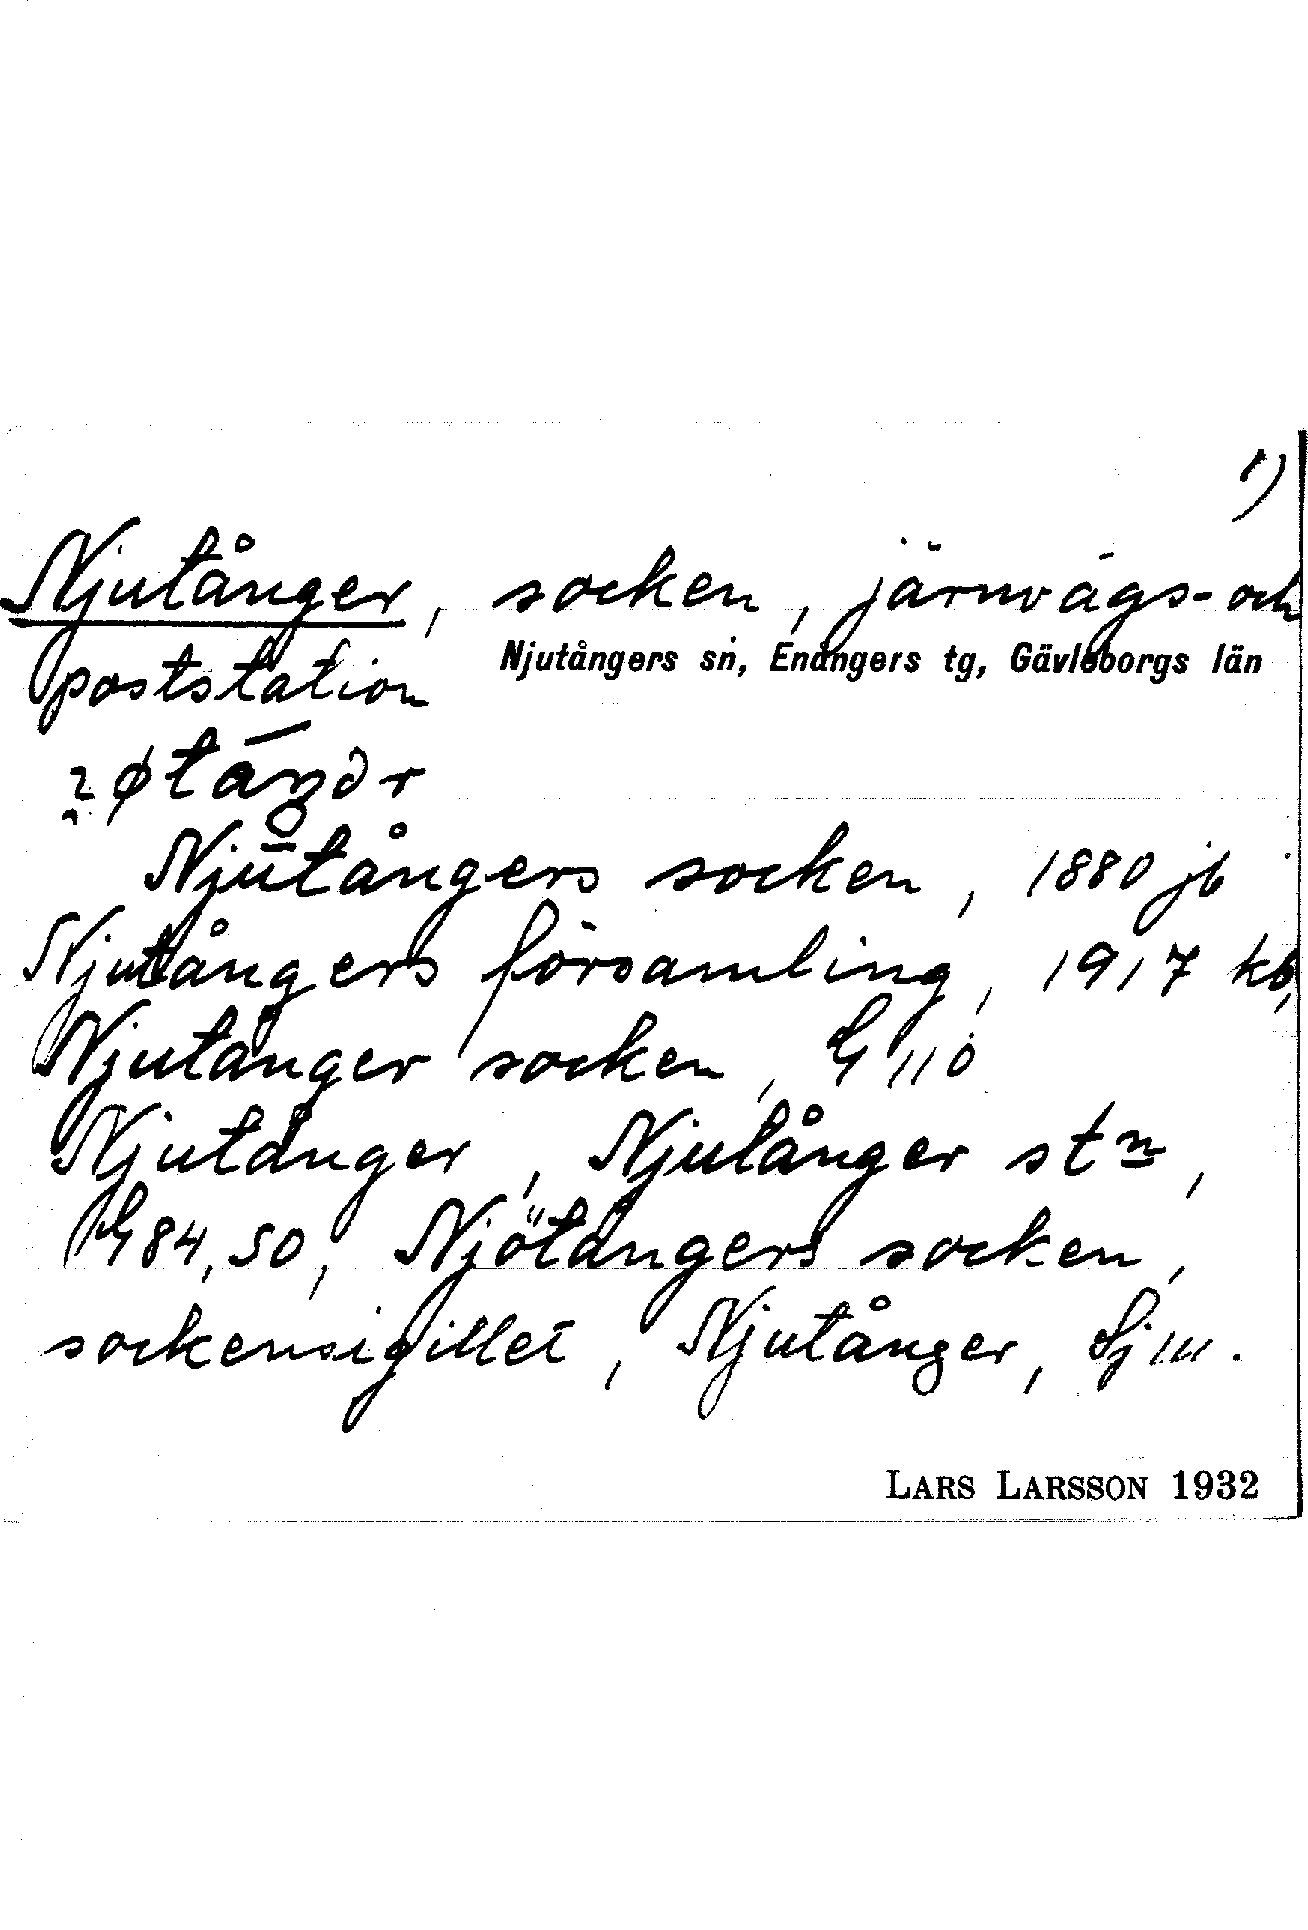 1)
Njutånger, socken, järnvägs- och
Njutångers sn, Enångers tg, Gävleborgs län
poststation
Njutångers socken, 1880 jb
Njutångers församling, 1917 kb,
Njutånger socken, G 110
Njutånger, Njutånger stn,
G 84, 50, Njötångers socken,
sockensigillet, Njutånger,
LARS LARSSON 1932